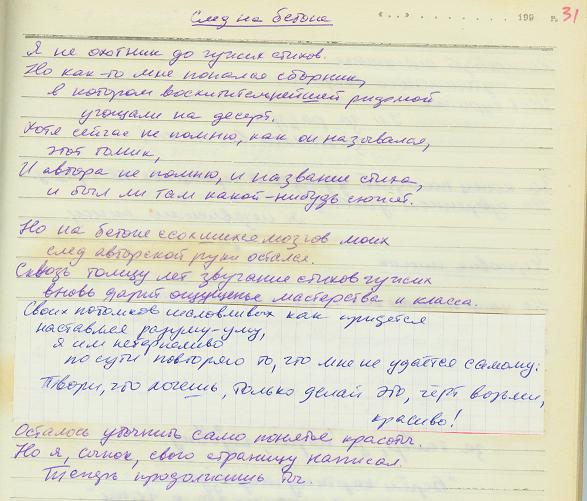 След на бетоне
«..» . . . . . . . . 199 г. 31
Я не охотник до чужих стихов.
Но как-то мне попался сборник,
в котором восхитительнейшей рифмой
угощали на десерт.
Хотя сейчас не помню, как он назывался,
этот томик,
И автора не помню, и название стиха,
и был ли там какой-нибудь сюжет.
Но на бетоне ссохшихся мозгов моих
след авторской руки остался.
Сквозь толщу лет звучание стихов чужих
вновь дарит ощущенье мастерства и класса.
Своих потомков шаловливых как придётся
наставляя разуму-уму,
я им нетерпеливо
по сути повторяю то, что мне не удаётся самому:
Твори, что хочешь, только делай это, чёрт возьми,
красиво!
Осталось уточнить само понятье красоты.
Но я, сынок, свою страницу написал.
Теперь продолжишь ты.